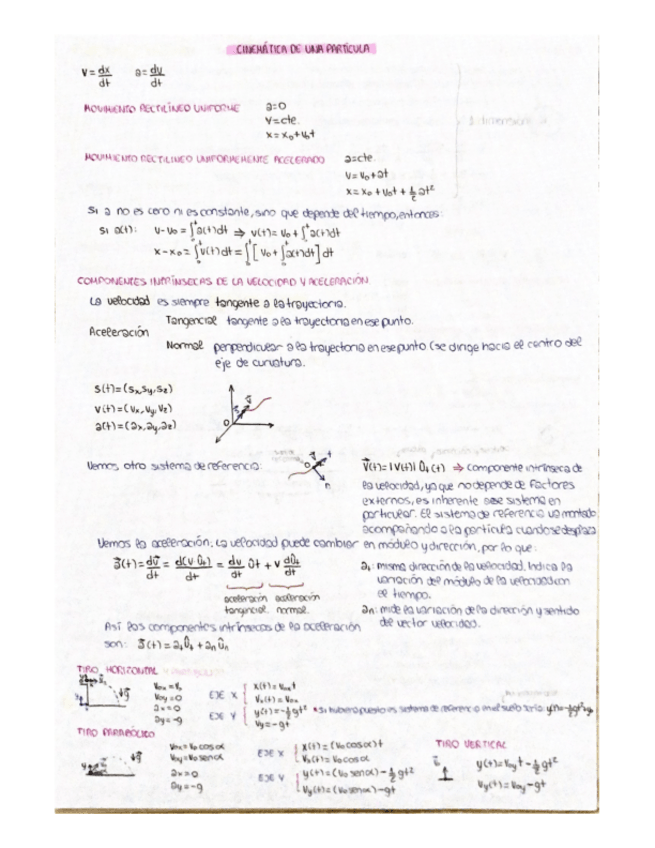 CINEMÁTICA DE UNA PARTÍCULA
v = dx/dt    a = dv/dt
MOVIMIENTO RECTILÍNEO UNIFORME    a=0
V=cte.
x = x₀+v₀t
MOVIMIENTO RECTILINEO UNIFORMEMENTE ACELERADO    a=cte.
v = v₀+at
x = x₀ + v₀t + ½ at²
Si a no es cero ni es constante, sino que depende del tiempo, entonces:
Si a(t):    v-v₀ = ∫₀ᵗ a(t)dt ⇒ v(t) = v₀ + ∫₀ᵗ a(t)dt
x-x₀ = ∫₀ᵗ v(t)dt = ∫₀ᵗ [v₀ + ∫₀ᵗ a(t)dt] dt
COMPONENTES INTRÍNSECAS DE LA VELOCIDAD Y ACELERACIÓN.
La velocidad es siempre tangente a la trayectoria.
Aceleración
Tangencial tangente a la trayectoria en ese punto.
Normal perpendicular a la trayectoria en ese punto (se dirige hacia el centro del
eje de curvatura.
s(t)=(sx,sy,sz)
v(t)=(vx,vy,vz)
a(t)=(ax,ay,az)
Vemos otro sistema de referencia:
V⃗(t)=|V(t)| Ût(t) ⇒ Componente intrínseca de
la velocidad, ya que no depende de factores
externos, es inherente a ese sistema en
particular. El sistema de referencia va montado
acompañando a la partícula cuando se desplaza
Vemos la aceleración: La velocidad puede cambiar en módulo y dirección, por lo que:
a⃗(t) = dv⃗/dt = d(v Ût)/dt = dv/dt Ût + v dÛt/dt
aceleración tangencial    aceleración normal.
at: misma dirección de la velocidad. Indica la
variación del módulo de la velocidad con
el tiempo.
an: mide la variación de la dirección y sentido
del vector velocidad.
Así las componentes intrínsecas de la aceleración
son: a⃗(t) = at Ût + an Ûn
TIRO HORIZONTAL
Vox = V₀
Voy = 0
ax = 0
ay = -g
EJE X { x(t) = Vox t
Vx(t) = Vox
EJE Y { y(t) = -½gt²
Vy = -gt
*Si hubiera puesto es sistema de referencia en el suelo sería:
TIRO PARABÓLICO
Vox = V₀ cosα
Voy = V₀ senα
ax = 0
ay = -g
EJE X { x(t) = (V₀ cosα)t
Vx(t) = V₀ cosα
EJE Y { y(t) = (V₀ senα) - ½ gt²
Vy(t) = (V₀ senα) - gt
TIRO VERTICAL
y(t) = Voy t - ½ gt²
Vy(t) = Voy - gt